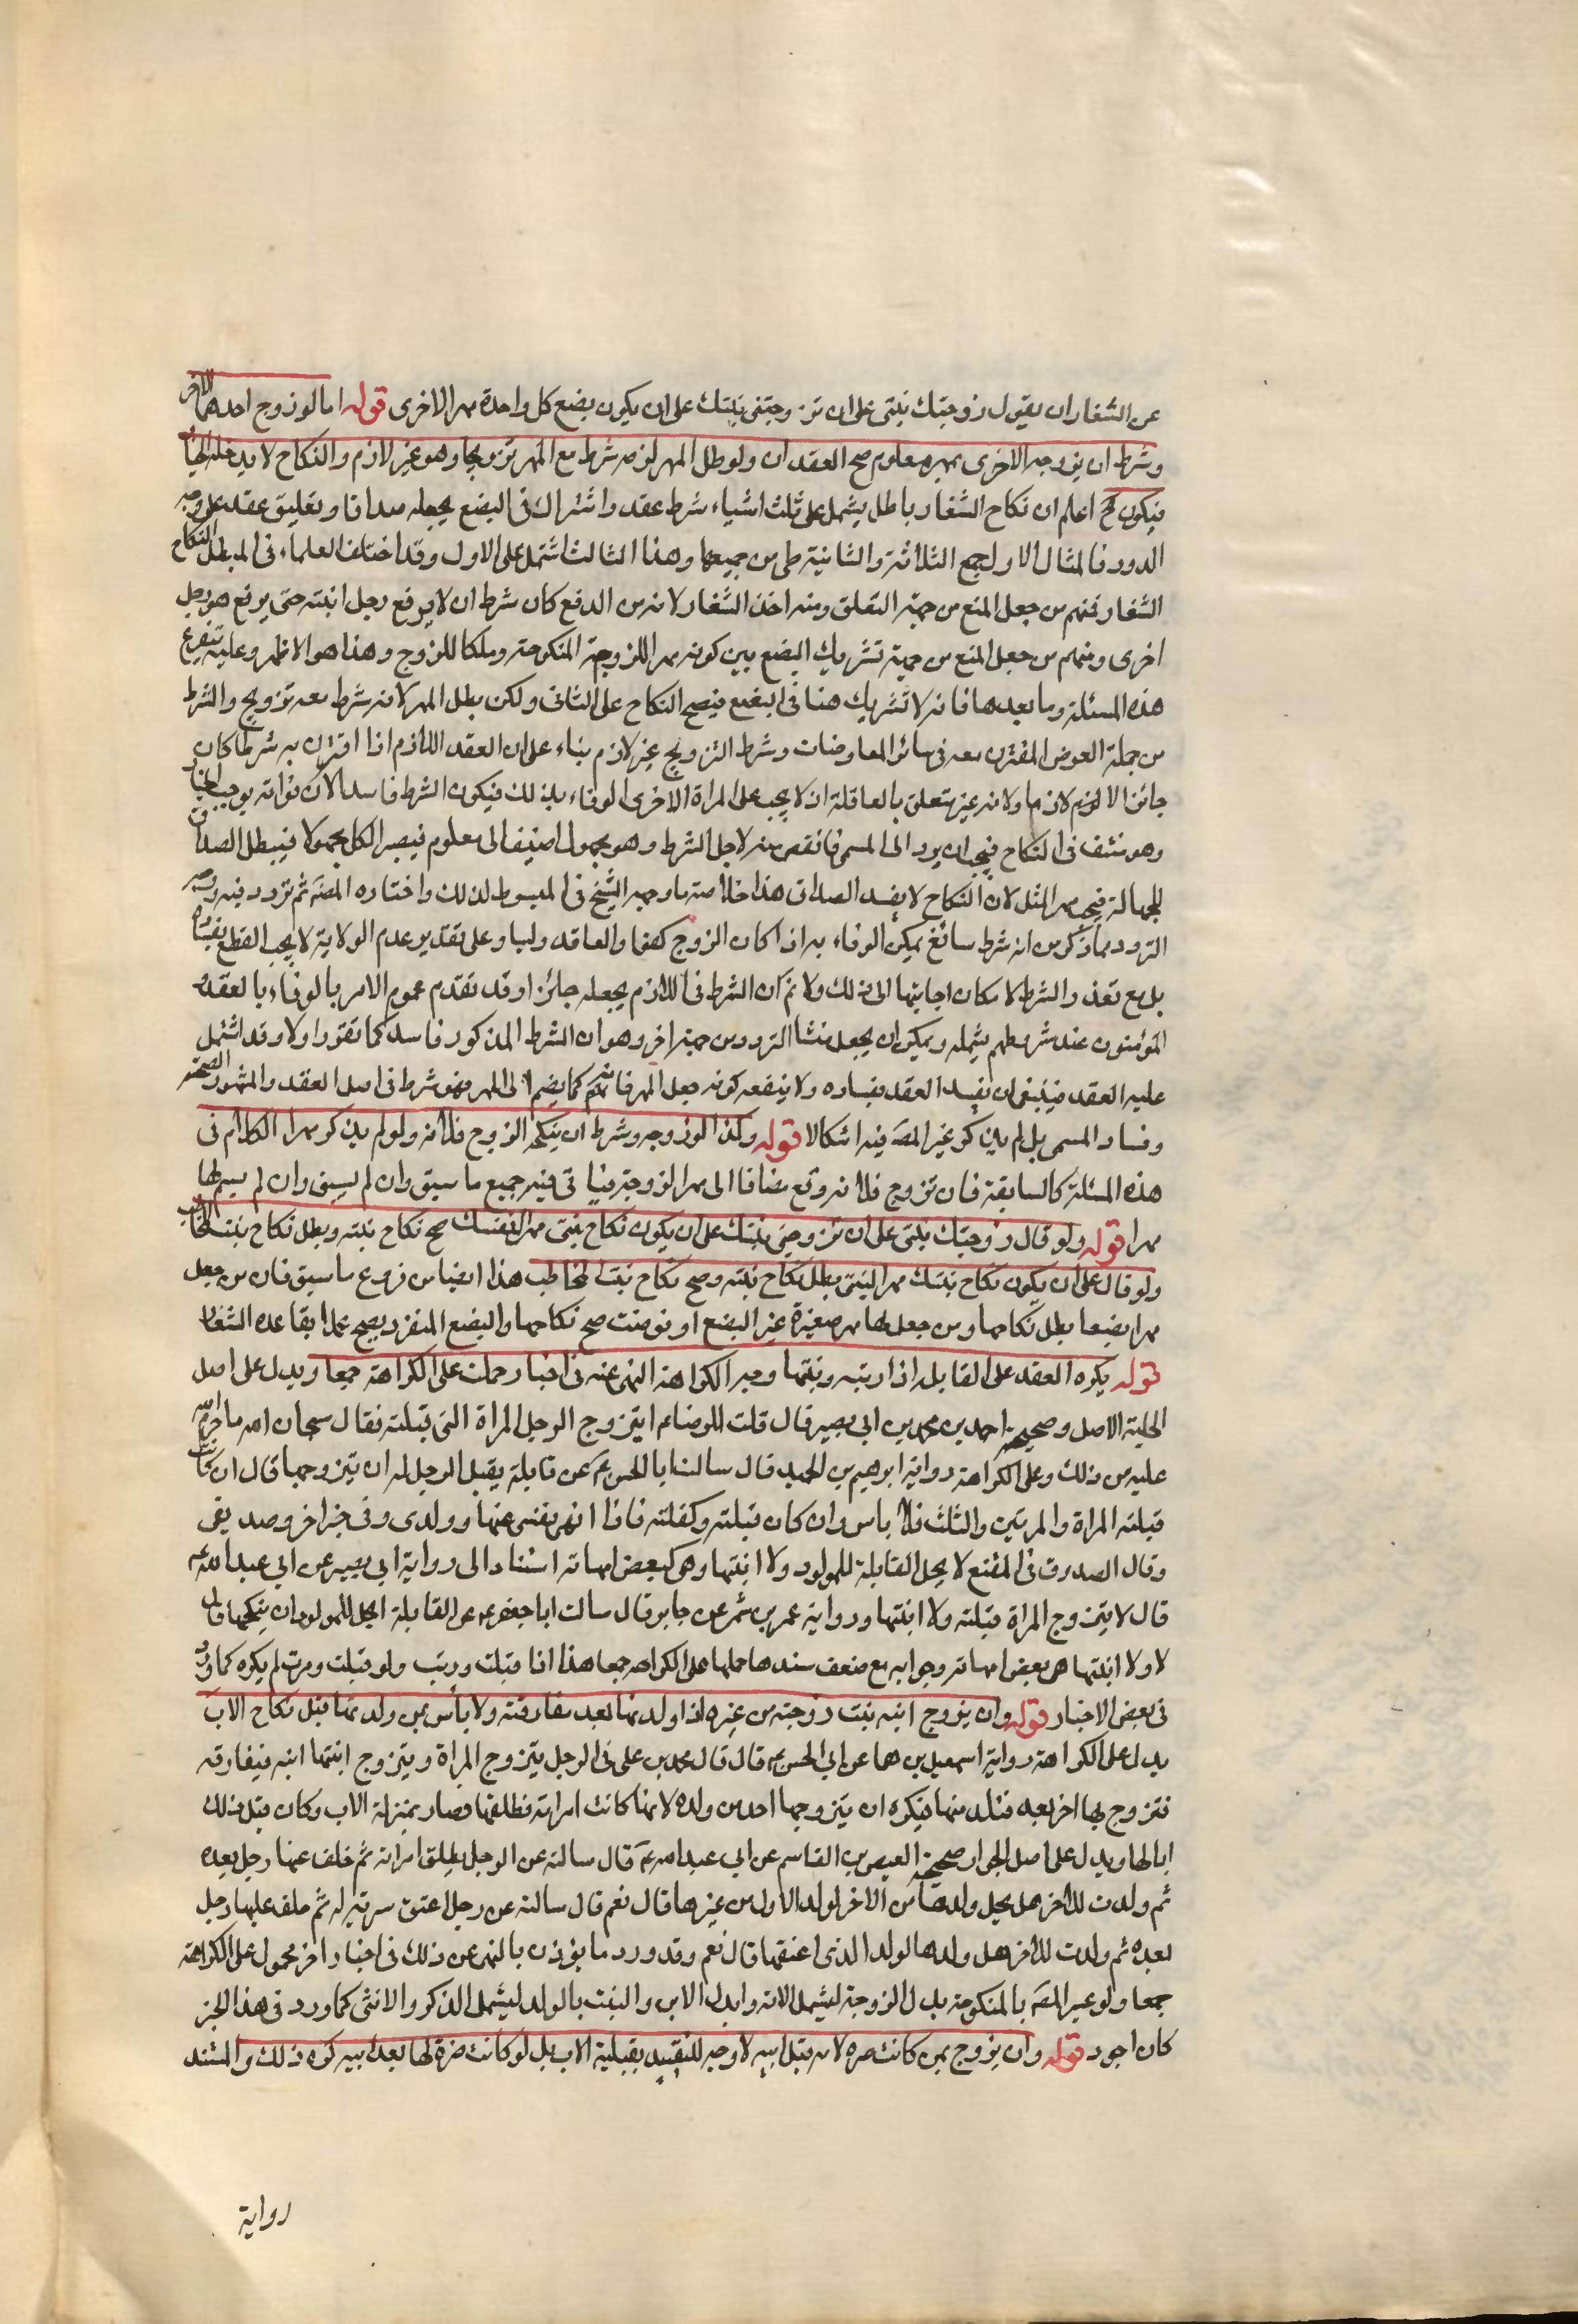 عن الشغار ان يقول زوجتك بنتى على ان تزوجنى بنتك على ان يكون بضع كل واحدة مهر الاخرى قوله اما لو زوج احدهما الاخر
وشرط ان يزوجه الاخرى بمهر معلوم صح العقدان ولو بطل المهر لانه شرط مع المهر تزويجا وهو غير لازم والنكاح لا يدخله الخيار
فيكون اعلم ان نكاح الشغار باطل يشمل على ثلث اشياء شرط عقد واشتراك فى البضع يجعله صداقا وتعليق عقد على وجه
الدور فالمثال الاول جمع الثلاثة والثانية من جميعها وهذا الثالث اشتمل على الاول وقد اختلف العلماء فى المبطل لنكاح
الشغار فمنهم من جعل المنع من جهة التعلق ومنه اخذ الشغار لانه من الدفع كان شرط ان لا يرفع رجل ابنته حتى يرفع هو رجل
اخرى ومنهم من جعل المنع من جهة تشريك البضع بين كونه مهرا للزوجة المنكوحة وملكا للزوج وهذا هو الاظهر وعليه يتفرع
هذه المسئلة وما بعدها فانه لا تشريك هنا فى البضع فيصح النكاح على الثانى ولكن بطل المهر لانه شرط معه تزويج والشرط
من جملة العوض المقترن معه فى سائر المعاوضات وشرط التزويج غير لازم بناء على ان العقد اللازم اذا اقترن به شرط كان
جائزا لا لازما ولانه غير متعلق بالعاقلة اذ لا يجب على المراة الاخرى الوفاء بذلك فيكون الشرط فاسدا لان فواته يوجب الخيار
وهو منتف فى النكاح فيجب ان يرد الى المسمى ما نقص منه لاجل الشرط وهو مجهول اضيف الى معلوم فيصير الكل مجهولا فيبطل الصداق
للجهالة فيجب مهر المثل لان النكاح لا يفسد الصداق هذا خلاصة ما وجهه الشيخ فى المبسوط لذلك واختاره المصَ ثم تردد فيه ووجه
التردد مما ذكر من انه شرط سائغ يمكن الوفاء به اذا كان الزوج كفوا والعاقد وليا وعلى تقدير عدم الولاية لا يجب القطع بفساده
بل مع تعذر الشرط لامكان اجابتها الى ذلك ولا نم ان الشرط فى اللازم يجعله جائزا وقد تقدم عموم الامر بالوفاء بالعقد
المؤمنون عند شروطهم يشمله ويمكن ان يجعل منشا التردد من جهة اخر وهو ان الشرط المذكور فاسد كما تقرر اولا وقد اشتمل
عليه العقد فينبغى ان يفسد العقد بفساده ولا ينفعه كونه جعل المهر فانه كما يضم الى المهر فهو شرط فى اصل العقد والمشهور الصحة
وفساد المسمى بل لم يذكر غير المصَ فيه اشكالا قوله وكذا لو زوجه وشرط ان ينكحه الزوج فلانة ولو لم يذكر مهرا الكلام فى
هذه المسئلة كالسابقة فان تزوج فلانه وقع مضافا الى مهر الزوجة فياتى فيه جميع ما سبق وان لم يسبق وان لم يسم لها
مهرا قوله ولو قال زوجتك بنتى على ان تزوجنى بنتك على ان يكون نكاح بنتى مهرا لبنتك صح نكاح بنته وبطل نكاح بنت المخاطب
ولو قال على ان يكون نكاح بنتك مهرا لبنتى بطل نكاح بنته وصح نكاح بنت المخاطب هذا ايضا من فروع ما سبق فان من جعل
مهرا بضعها بطل نكاحها ومن جعل لها مهر صغيرة غير البضع او فوضت صح نكاحها والبضع المنفرد يصح عملا بقاعدة الشغار
قوله يكره العقد على القابلة اذا ربته وبنتها وجه الكراهة النهى عنه فى اخبار حملت على الكراهة جمعا ويدل على اصل
الحلية الاصل وصحيحة احمد بن محمد بن ابى بصير قال قلت للرضا عم ايتزوج الرجل المراة التى قبلته فقال سبحان الله ما حرم الله
عليه من ذلك وعلى الكراهة رواية ابراهيم بن الحميد قال سالت ابا الحسن عَ عن قابلة يقبل الرجل له ان يتزوجها قال ان كانت
قبلته المراة والمرتين والثلث فلا باس وان كان قبلته وكفلته فانا انهى نفسى عنها وولدى وفى خبر اخر وصديقى
وقال الصدوق فى المقنع لا يحل القابلة للمولود ولا ابنتها وهى كبعض امهاته استنادا الى رواية ابى بصير عن ابى عبد الله عم
قال لا يتزوج المراة قبلته ولا ابنتها ورواية عمر بن شمر عن جابر قال سالت ابا جعفر عم عن القابلة ايحل للمولود ان ينكحها قال
لا ولا ابنتها هى بعض امهاته وجوابه مع ضعف سندها حملها على الكراهة جمعا هذا اذا قبلت وربت ولو قبلت ومرت لم يكره كما ورد
فى بعض الاخبار قوله وان يزوج ابنه بنت زوجته من غيره اذا ولدتها بعد مفارقته ولا باس بمن ولدتها قبل نكاح الاب
يدل على الكراهة رواية اسمعيل بن همام عن ابى الحسن عم قال قال محمد بن على فى الرجل يتزوج المراة ويتزوج ابنتها ابنه فيفارقه
فتزوج بها اخر بعده فتلد منها فيكره ان يتزوجها احد من ولده لانها كانت امراته فطلقها فصار بمنزلة الاب وكان قبل ذلك
ابا لها ويدل على اصل الجواز صحيحة العيص بن القاسم عن ابى عبد الله عَ قال سالته عن الرجل يطلق امراته ثم خلف عنها رجل بعده
ثم ولدت للاخر هل يحل ولدها من الاخر لولد الاول من غيرها قال نعم قال سالته عن رجل اعتق سرية له ثم خلف عليها رجل
بعده ثم ولدت للاخر هل ولدها لولد الذى اعتقها قال نعم وقد ورد ما يؤذن بالنهى عن ذلك فى اخبار اخر محمول على الكراهة
جمعا ولو عبر المصَ بالمنكوحة بدل الزوجة ليشمل الامة وابدل الابن والبنت بالولد ليشمل الذكر والانثى كما ورد فى هذا الخبر
كان اجود قوله وان يزوج بمن كانت ضرة لامه قبل ابيه لا وجه للتقييد بقبلية الاب بل لو كانت ضرة لها بعد ابيه كره ذلك والمستند
رواية